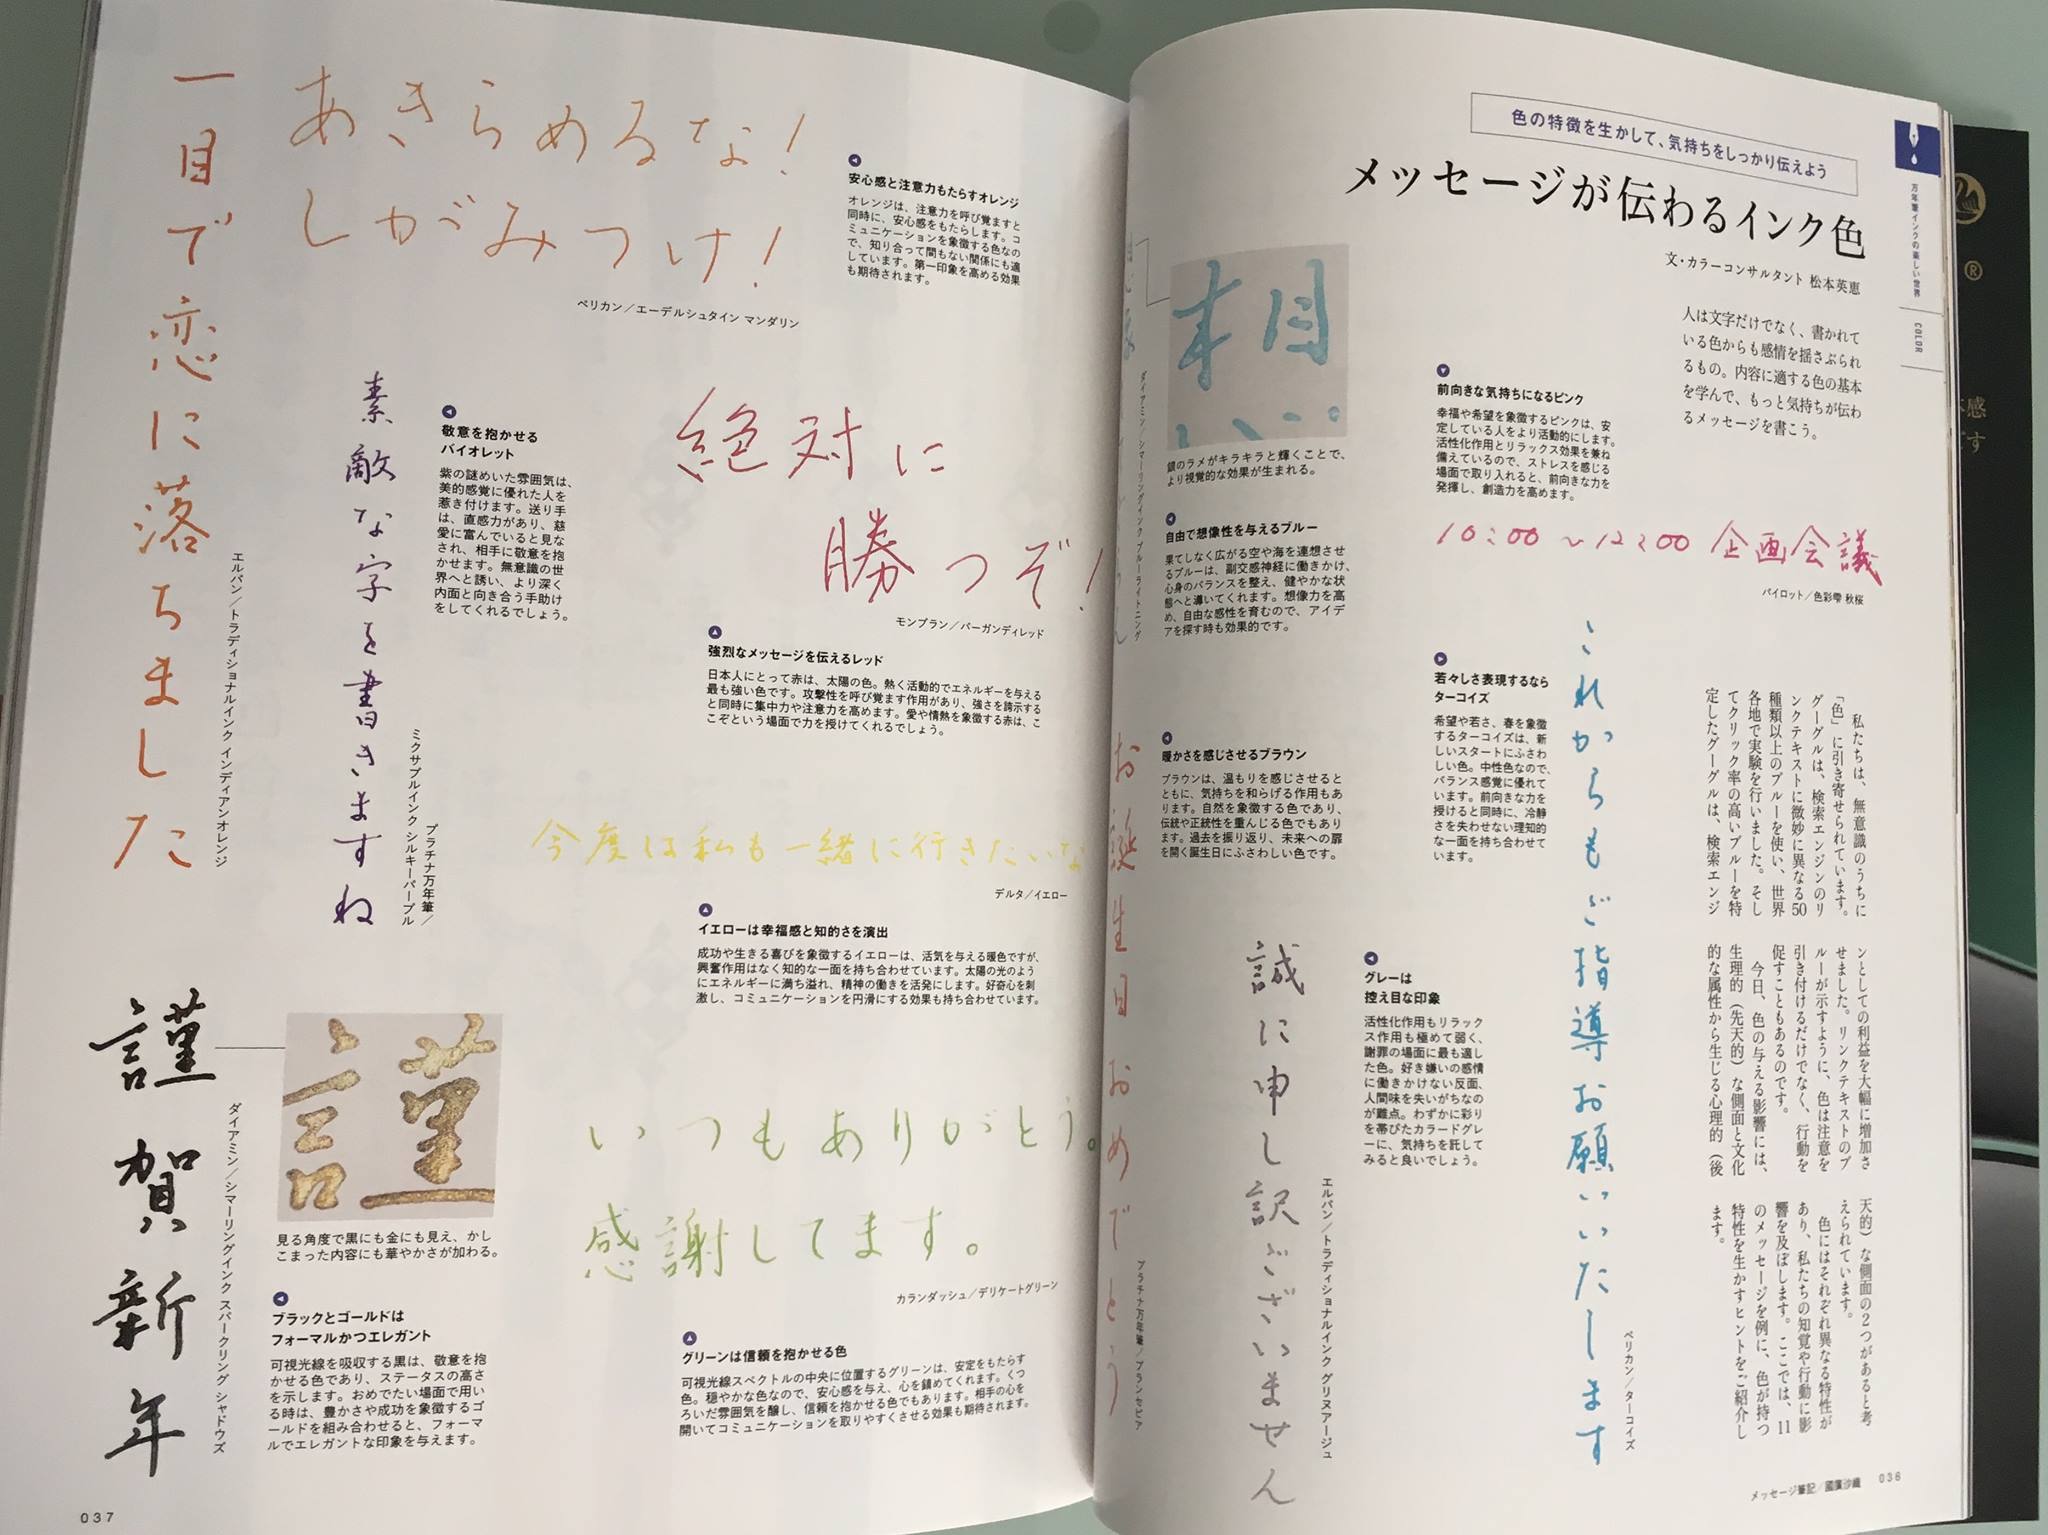 万年筆インクの楽しい世界
COLOR
色の特徴を生かして、気持ちをしっかり伝えよう
メッセージが伝わるインク色
文・カラーコンサルタント 松本英恵
人は文字だけでなく、書かれて
いる色からも感情を揺さぶられ
るもの。内容に適する色の基本
を学んで、もっと気持ちが伝わ
るメッセージを書こう。
私たちは、無意識のうちに
「色」に引き寄せられています。
グーグルは、検索エンジンのリ
ンクテキストに微妙に異なる50
種類以上のブルーを使い、世界
各地で実験を行いました。そし
てクリック率の高いブルーを特
定したグーグルは、検索エンジ
ンとしての利益を大幅に増加さ
せました。リンクテキストのブ
ルーが示すように、色は注意を
引き付けるだけでなく、行動を
促すこともあるのです。
今日、色の与える影響には、
生理的（先天的）な側面と文化
的な属性から生じる心理的（後
天的）な側面の2つがあると考
えられています。
色にはそれぞれ異なる特性が
あり、私たちの知覚や行動に影
響を及ぼします。ここでは、11
のメッセージを例に、色が持つ
特性を生かすヒントをご紹介し
ます。
前向きな気持ちになるピンク
幸福や希望を象徴するピンクは、安
定している人をより活動的にします。
活性化作用とリラックス効果を兼ね
備えているので、ストレスを感じる
場面で取り入れると、前向きな力を
発揮し、創造力を高めます。
10:00〜12:00 企画会議
パイロット／色彩雫 秋桜
若々しさ表現するなら
ターコイズ
希望や若さ、春を象徴
するターコイズは、新
しいスタートにふさわ
しい色。中性色なので、
バランス感覚に優れて
います。前向きな力を
授けると同時に、冷静
さを失わせない理知的
な一面を持ち合わせて
います。
これからもご指導お願いいたします
ペリカン／ターコイズ
グレーは
控え目な印象
活性化作用もリラック
ス作用も極めて弱く、
謝罪の場面に最も適し
た色。好き嫌いの感情
に働きかけない反面、
人間味を失いがちなの
が難点。わずかに彩り
を帯びたカラードグレ
ーに、気持ちを託して
みると良いでしょう。
誠に申し訳ございません
エルバン／トラディショナルインク グリヌアージュ
想
銀のラメがキラキラと輝くことで、
より視覚的な効果が生まれる。
ダイアミン／シマーリングインク ブルーライトニング
自由で想像性を与えるブルー
果てしなく広がる空や海を連想させ
るブルーは、副交感神経に働きかけ、
心身のバランスを整え、健やかな状
態へと導いてくれます。想像力を高
め、自由な感性を育むので、アイデ
アを探す時も効果的です。
暖かさを感じさせるブラウン
ブラウンは、温もりを感じさせると
ともに、気持ちを和らげる作用もあ
ります。自然を象徴する色であり、
伝統や正統性を重んじる色でもあり
ます。過去を振り返り、未来への扉
を開く誕生日にふさわしい色です。
お誕生日おめでとう
プラチナ万年筆／ブランセピア
メッセージ筆記／國廣沙織
036
あきらめるな！
しがみつけ！
ペリカン／エーデルシュタイン マンダリン
安心感と注意力もたらすオレンジ
オレンジは、注意力を呼び覚ますと
同時に、安心感をもたらします。コ
ミュニケーションを象徴する色なの
で、知り合って間もない関係にも適
しています。第一印象を高める効果
も期待されます。
一目で恋に落ちました
エルバン／トラディショナルインク インディアンオレンジ
絶対に
勝つぞ！
モンブラン／バーガンディレッド
強烈なメッセージを伝えるレッド
日本人にとって赤は、太陽の色。熱く活動的でエネルギーを与える
最も強い色です。攻撃性を呼び覚ます作用があり、強さを誇示する
と同時に集中力や注意力を高めます。愛や情熱を象徴する赤は、こ
こぞという場面で力を授けてくれるでしょう。
敬意を抱かせる
バイオレット
紫の謎めいた雰囲気は、
美的感覚に優れた人を
惹き付けます。送り手
は、直感力があり、慈
愛に富んでいると見な
され、相手に敬意を抱
かせます。無意識の世
界へと誘い、より深く
内面と向き合う手助け
をしてくれるでしょう。
素敵な字を書きますね
プラチナ万年筆／
ミクサブルインク シルキーパープル
今度は私も一緒に行きたいな
デルタ／イエロー
イエローは幸福感と知的さを演出
成功や生きる喜びを象徴するイエローは、活気を与える暖色ですが、
興奮作用はなく知的な一面を持ち合わせています。太陽の光のよう
にエネルギーに満ち溢れ、精神の働きを活発にします。好奇心を刺
激し、コミュニケーションを円滑にする効果も持ち合わせています。
いつもありがとう。
感謝してます。
カランダッシュ／デリケートグリーン
グリーンは信頼を抱かせる色
可視光線スペクトルの中央に位置するグリーンは、安定をもたらす
色。穏やかな色なので、安心感を与え、心を鎮めてくれます。くつ
ろいだ雰囲気を醸し、信頼を抱かせる色でもあります。相手の心を
開いてコミュニケーションを取りやすくさせる効果も期待されます。
謹賀新年
ダイアミン／シマーリングインク スパークリング シャドウズ
謹
見る角度で黒にも金にも見え、かし
こまった内容にも華やかさが加わる。
ブラックとゴールドは
フォーマルかつエレガント
可視光線を吸収する黒は、敬意を抱
かせる色であり、ステータスの高さ
を示します。おめでたい場面で用い
る時は、豊かさや成功を象徴するゴ
ールドを組み合わせると、フォーマ
ルでエレガントな印象を与えます。
037